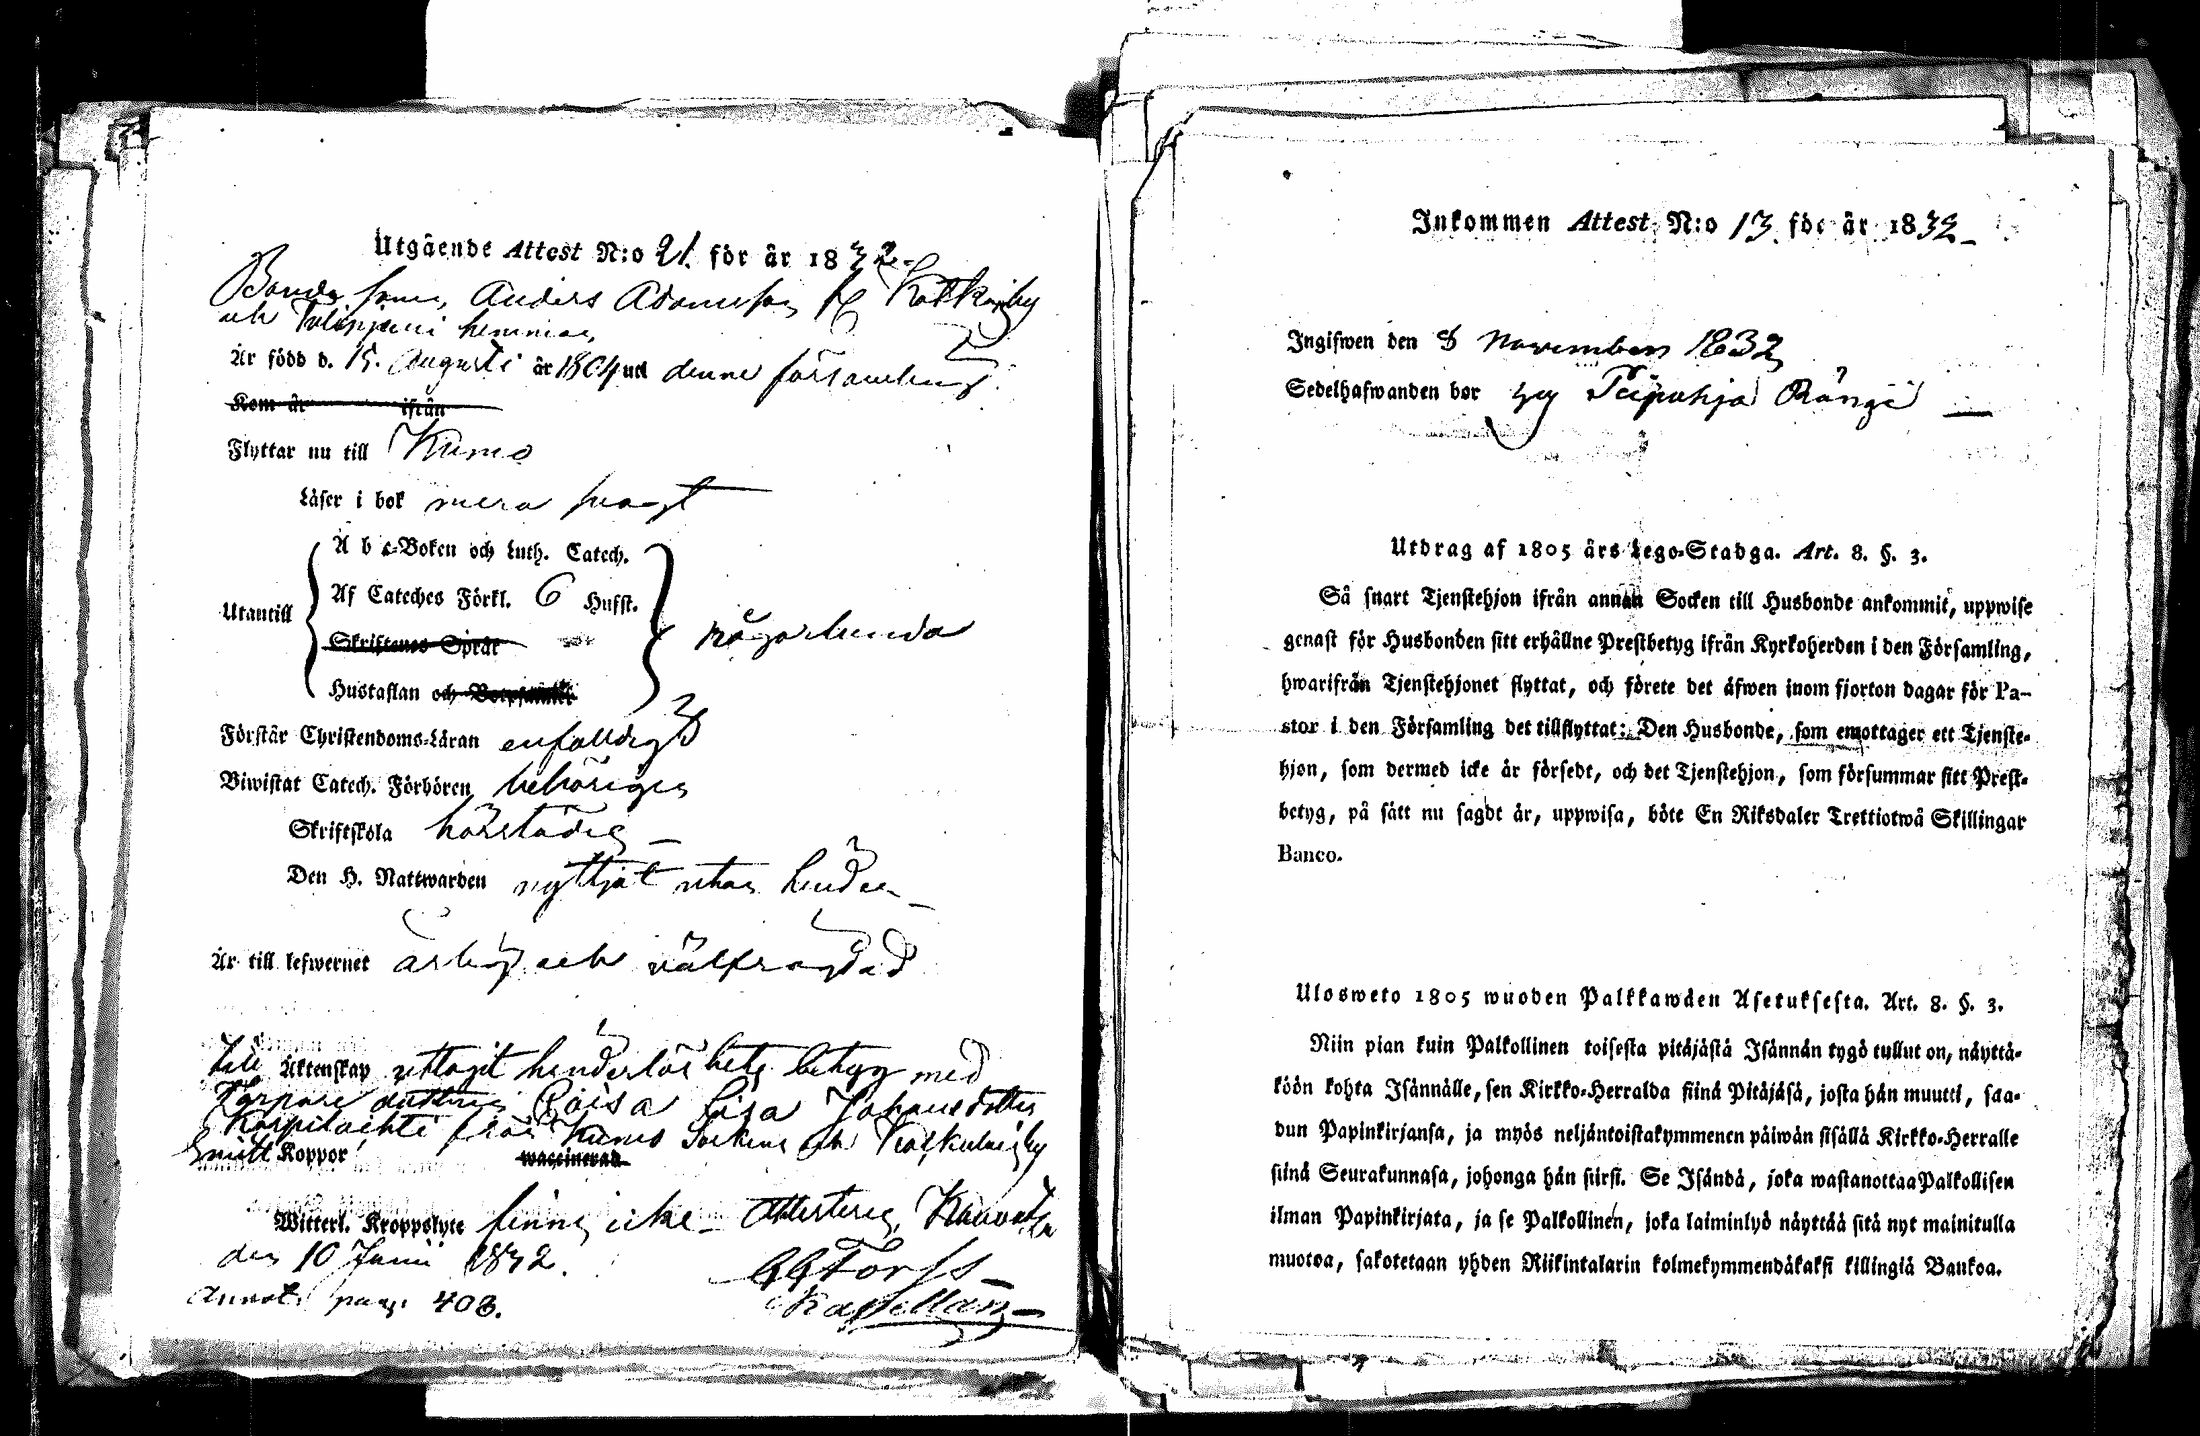 Utgående Attest N:o 21. för år 1832.
Bonde sonen, Anders Adamsson fr
och hemman,
Är född d. 15. Augusti år 1804 uti denne församling.
Kom år ifrån
Flyttar nu till Kumo
Läser i bok mera svagt
A b c-Boken och Luth. Catech.
Af Cateches Förkl. 6 Hufst.
Utantill
någorlunda
Skriftenes Språk
Hustaflan och
Förstår Christendoms-Läran enfaldigt
Biwistat Catech. Förhören behörigen
Skriftskola
Den H. Nattwarden nyttjat utan hinder
Är till lefwernet ärlig och välfrägdad
Till Äktenskap uttagit hinderlös hets betyg med
Torpare dottren Caisa Lisa Johansdotter
från Kumo Socken och
Koppor waccinerad
Witterl. Kroppslyte finnes icke Attesterer, Kauvatsa
den 10 Junii 1832.
Annot. pag. 403.
GGForss
Kapellan
Inkommen Attest N:o 13. för år 1832
Ingifwen den 8 November 1832
Sedelhafwanden bor
Utdrag af 1805 års Lego-Stadga. Art. 8. §. 3.
Så snart Tjenstehjon ifrån annan Socken till Husbonde ankommit, uppwise
genast för Husbonden sitt erhållne Prestbetyg ifrån Kyrkoherden i den Församling,
hwarifrån Tjenstehjonet flyttat, och förete det äfwen inom fjorton dagar för Pa-
stor i den Församling det tillflyttat: Den Husbonde, som emottager ett Tjenste-
hjon, som dermed icke är försedt, och det Tjenstehjon, som försummar sitt Prest-
betyg, på sätt nu sagdt är, uppwisa, böte En Riksdaler Trettiotwå Skillingar
Banco.
Ulosweto 1805 wuoden Palkkawäen Asetuksesta. Art. 8. §. 3.
Niin pian kuin Palkollinen toisesta pitäjästä Isännän tygö tullut on, näyttä-
köön kohta Isännälle, sen Kirkko-Herralda siinä Pitäjäsä, josta hän muutti, saa-
dun Papinkirjansa, ja myös neljäntoistakymmenen päiwän sisällä Kirkko-Herralle
siinä Seurakunnasa, johonga hän siirsi. Se Isändä, joka wastanottaa Palkollisen
ilman Papinkirjata, ja se Palkollinen, joka laiminlyö näyttää sitä nyt mainitulla
muotoa, sakotetaan yhden Riikintalarin kolmekymmendäkaksi killingiä Bankoa.